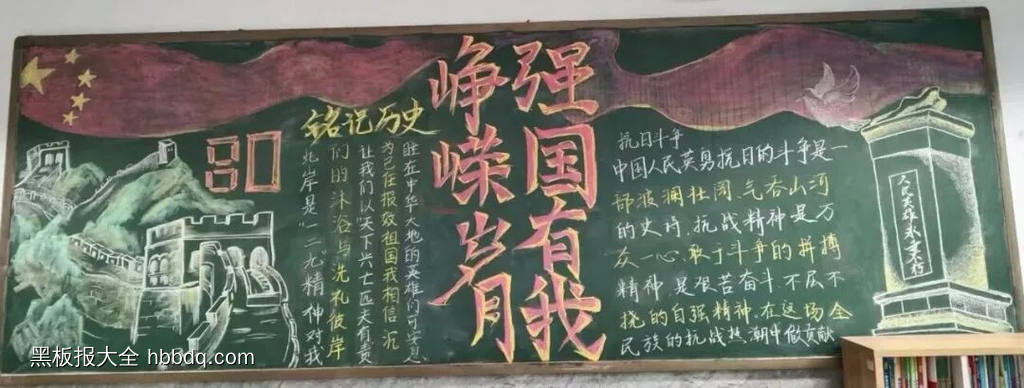 80
铭记历史
此岸是“一二九”精神对我
们的沐浴与洗礼彼岸
让我们以“天下兴亡匹夫有责
为己任报效祖国我相信沉
睡在中华大地的英雄们可安息
强国有我
峥嵘岁月
抗日斗争
中国人民英勇抗日的斗争是一
部波澜壮阔、气吞山河
的史诗,抗战精神是万
众一心、敢于斗争的拼搏
精神,是艰苦奋斗、不屈不
挠的自强精神,在这场全
民族的抗战热潮中做贡献
人民英雄永垂不朽
黑板报大全 hbbdq.com